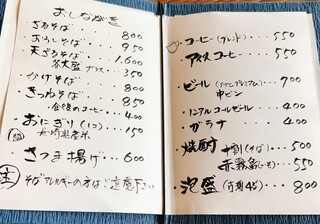 おしながき
ざるそば・・・ 800
おろしそば・・・ 950
天ざるそば・・・ 1,600
各大盛 プラス・・・ 350
かけそば・・・ 800
きつねそば・・・ 850
食後のコーヒー・・・ 400
おにぎり(1コ)・・・ 150
長崎県産米
さつま揚げ・・・ 600
そばアレルギーの方はご遠慮下さい
コーヒー(ブレンド)・・・ 550
アイスコーヒー・・・ 550
ビール 中ビン・・・ 700
ノンアルコールビール・・・ 400
ガラナ・・・ 400
焼酎 十割(そば) 500
赤霧島(いも) 550
泡盛 800